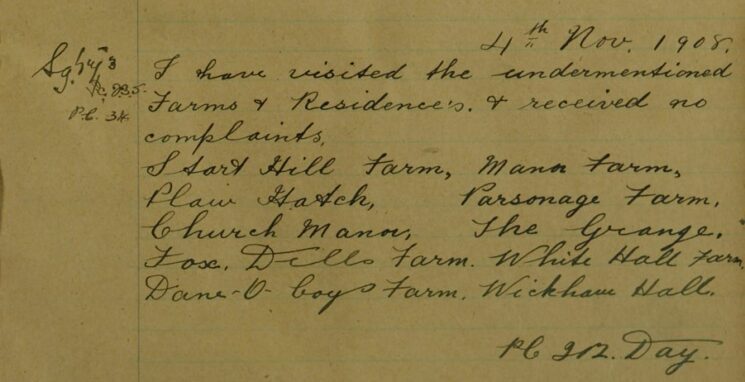 4th Nov. 1908.
Sgt 3
Pc. 235.
P.C. 34.
I have visited the undermentioned
Farms & Residence's. & received no
complaints.
Start Hill Farm, Manor Farm,
Plaw Hatch, Parsonage Farm.
Church Manor, The Grange.
Fox. Dells Farm. White Hall Farm.
Dane-O-Coys Farm. Wickham Hall.
PC 212. Day.